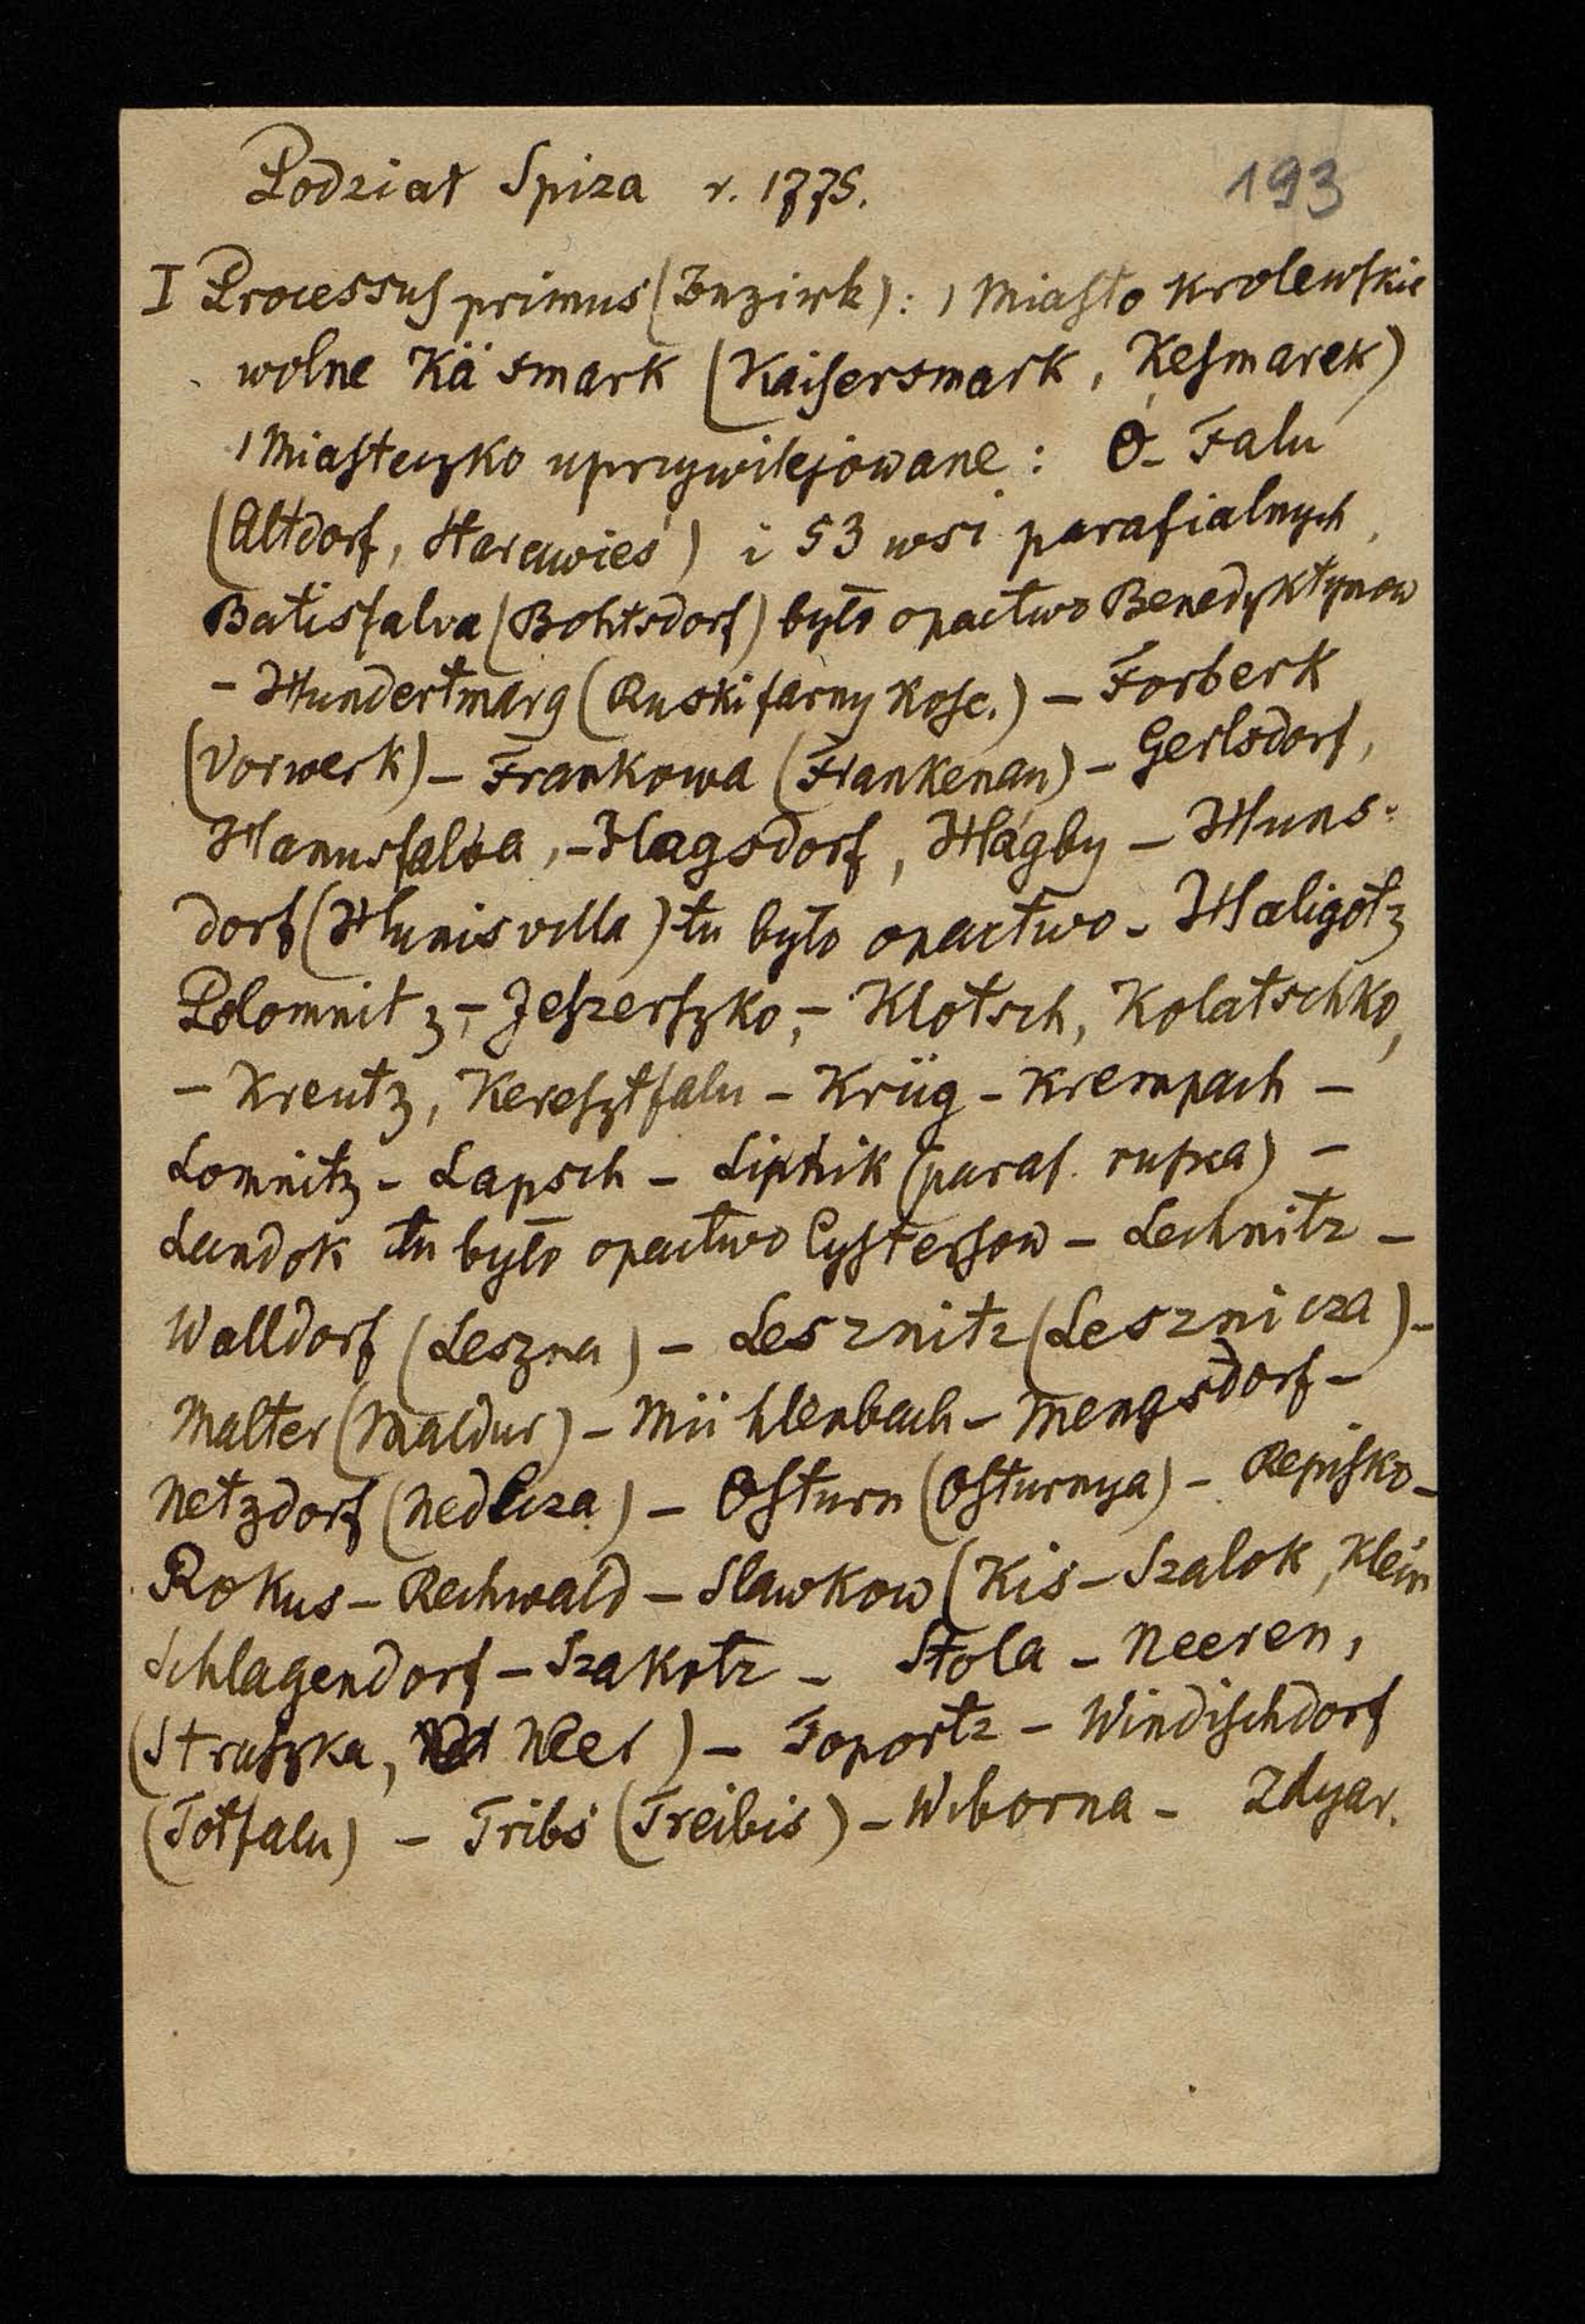 Podział Spiza r. 1775.
193
I Processus primus (Bezirk): 1 Miasto krolewskie
wolne Käsmark (Kaisersmark, Kesmarek)
1 Miasteczko uprzywilejowane: Ó-Falu
(Altdorf, Starawieś) i 53 wsi parafialnych,
Batisfalva (Bohtsdorf) było opactwo Benedyktynow
- Hundertmarg (Ruski farny kośc.) - Forberk
(Vorwerk) - Frankowa (Frankenau) - Gerlsdorf,
Hanusfalva, - Hagsdorf, Hágby - Huns-
dorf (Hunisvilla) tu było opactwo - Haligotz
Polomnitz, - Jeszerszko, - Klotsch, Kolatschko,
- Kreutz, Keresztfalu - Krüg - Krempach -
Lomnitz - Lapsch - Lipnik (paraf. ruska) -
Landok tu było opactwo Cystersow - Lechnitz -
Walldorf (Leszna) - Lesznitz (Lesznicza) -
Malter (Maldur) - Mühlenbach - Mengsdorf -
Netzdorf (Nedecza) - Osturn (Osturnya) - Repisko -
Rokus - Rechwald - Slawkow (Kis-Szalok, Klein
Schlagendorf - Szakotz - Stola - Neeren,
(Straszka, Neer) - Toportz - Windischdorf
(Totfalu) - Tribs (Treibis) - Wiborna - Zdyar.